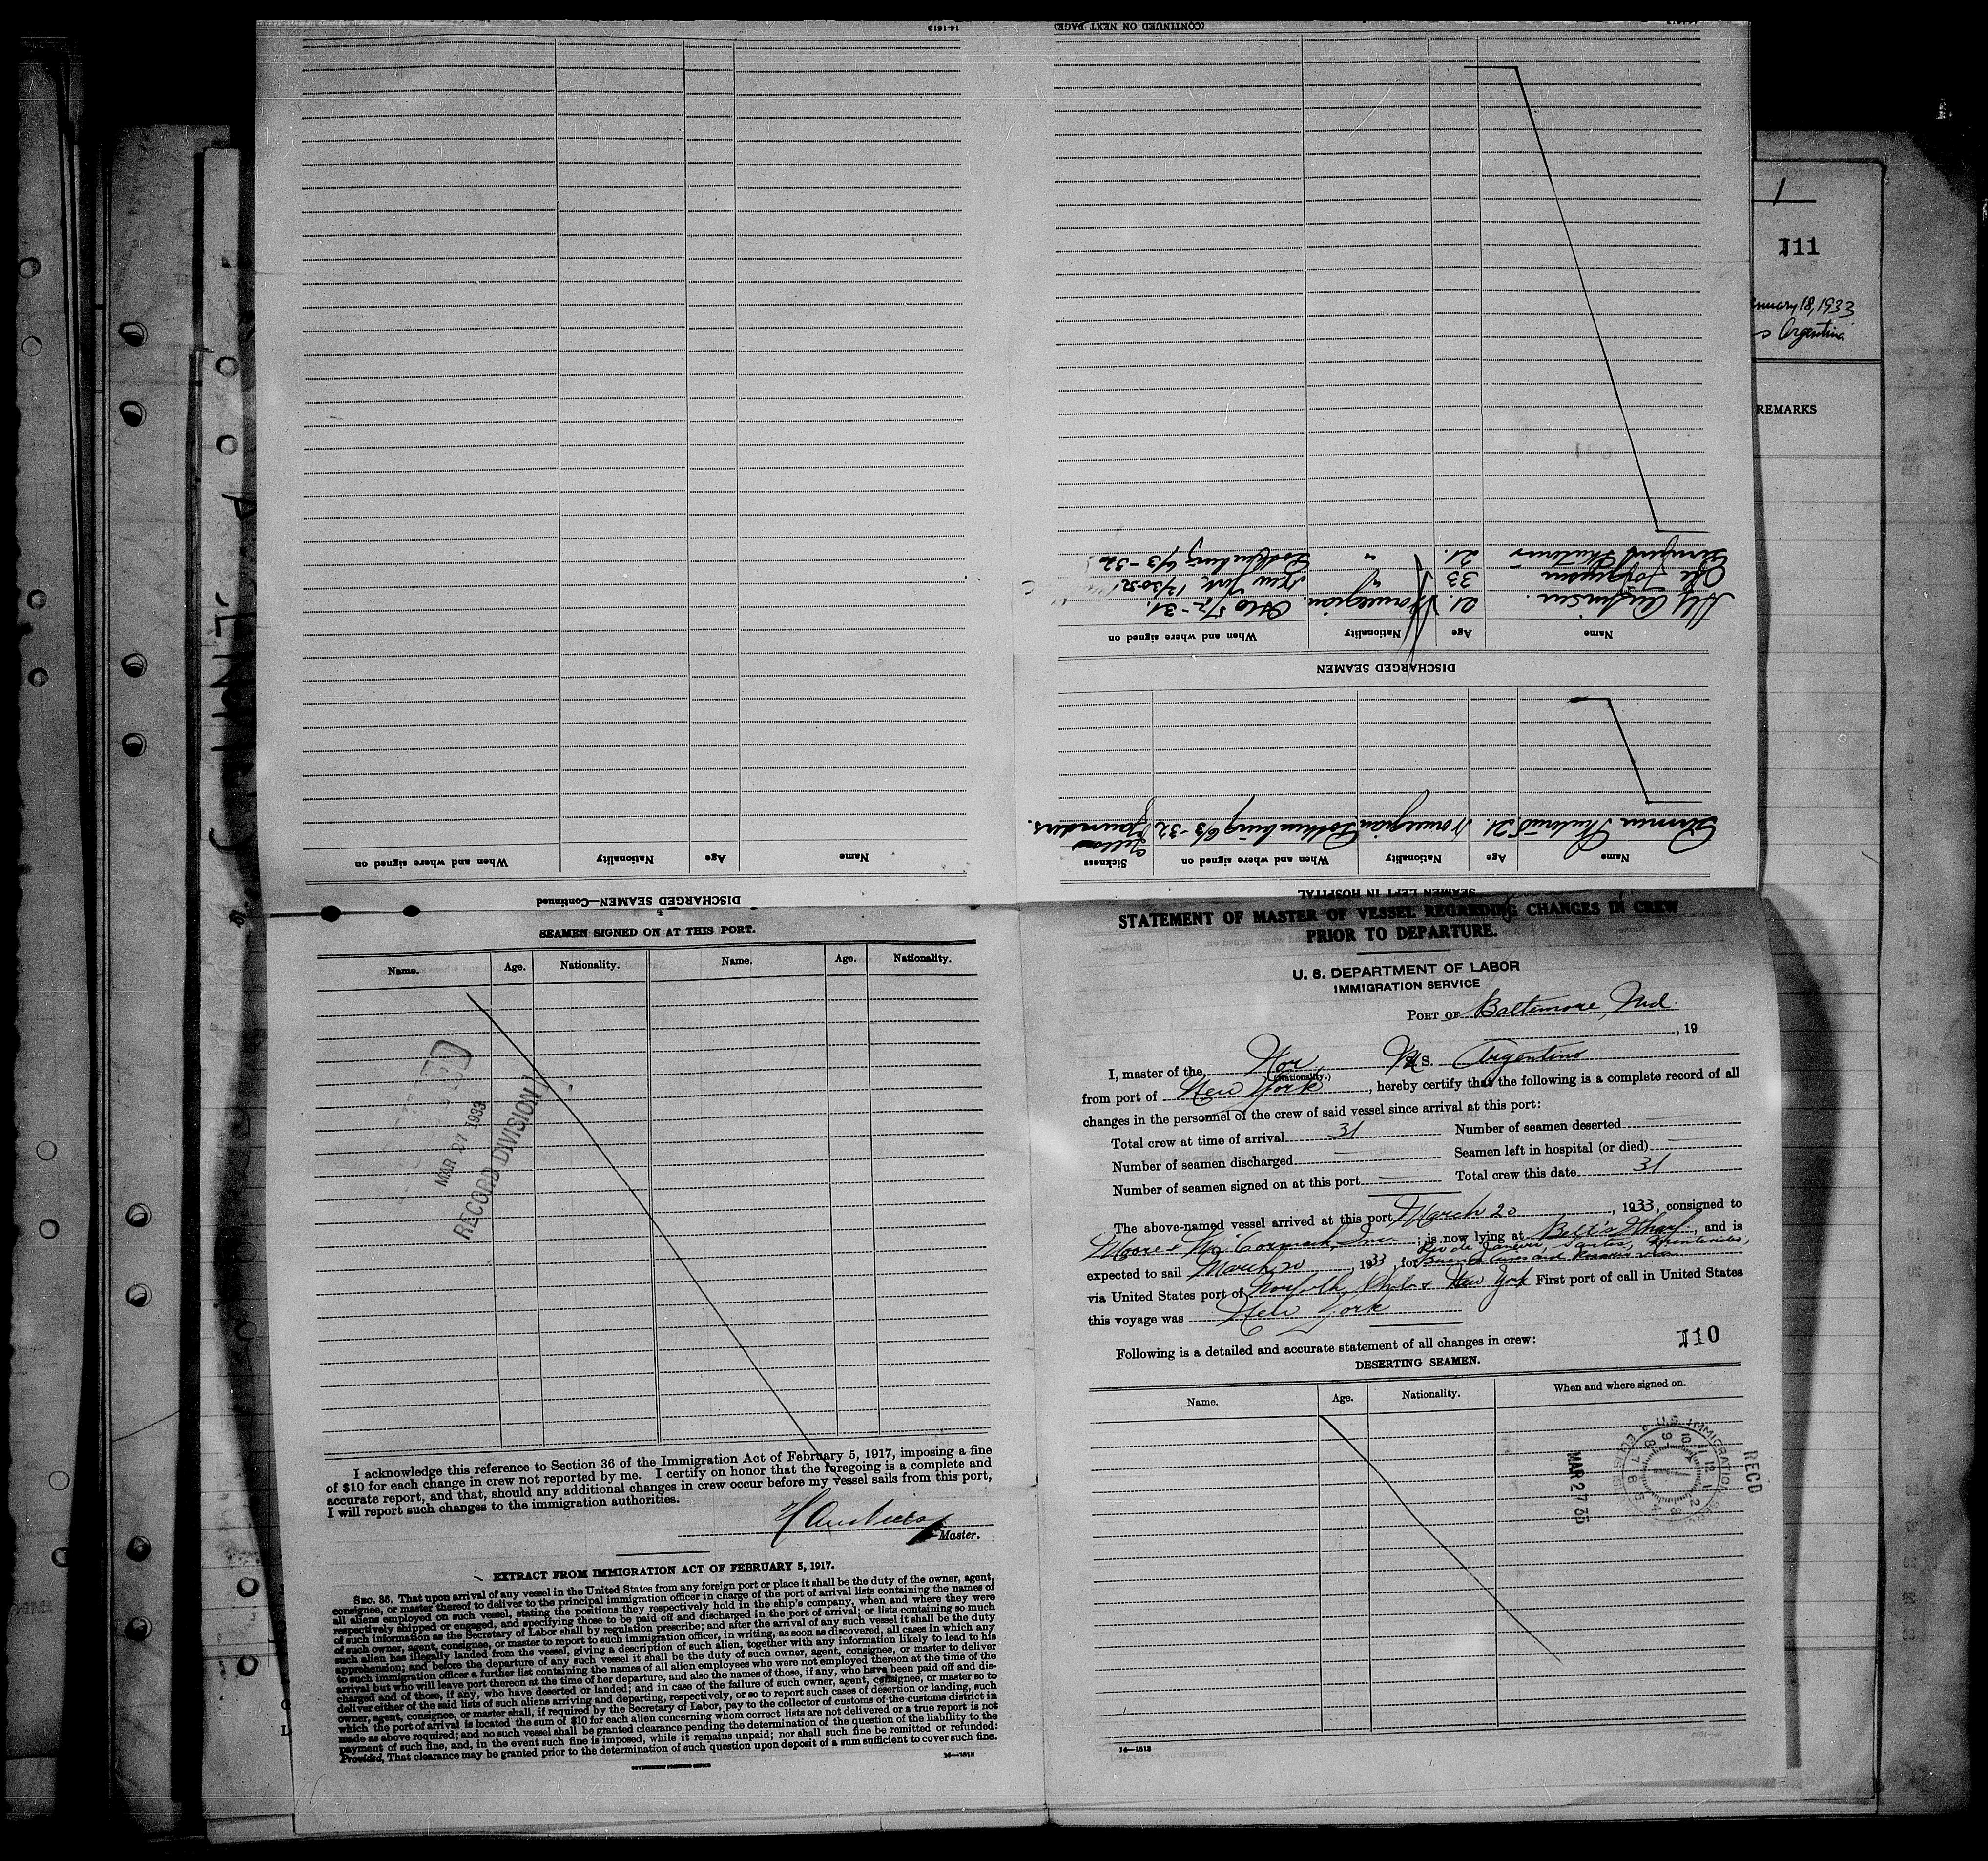 14-1613
DISCHARGED SEAMEN—Continued
Name Age Nationality When and where signed on
(CONTINUED ON NEXT PAGE)
SEAMEN LEFT IN HOSPITAL
Name Age Nationality When and where signed on Sickness
21. Norwegian 6/3-32 Yellow Jaundris.
DISCHARGED SEAMEN
Name Age Nationality When and where signed on
21. Norwegian. Oslo 5/2-31.
Ole 33 " New York 12/30 32
21. " 6/3-32
1
111
nuary 18, 1933
s Argentina
REMARKS
SEAMEN SIGNED ON AT THIS PORT.
Name. Age. Nationality. Name. Age. Nationality.
MAR 27 1933
RECORD DIVISION
I acknowledge this reference to Section 36 of the Immigration Act of February 5, 1917, imposing a fine
of $10 for each change in crew not reported by me. I certify on honor that the foregoing is a complete and
accurate report, and that, should any additional changes in crew occur before my vessel sails from this port,
I will report such changes to the immigration authorities.
Master.
EXTRACT FROM IMMIGRATION ACT OF FEBRUARY 5, 1917.
SEC. 36. That upon arrival of any vessel in the United States from any foreign port or place it shall be the duty of the owner, agent,
consignee, or master thereof to deliver to the principal immigration officer in charge of the port of arrival lists containing the names of
all aliens employed on such vessel, stating the positions they respectively hold in the ship's company, when and where they were
respectively shipped or engaged, and specifying those to be paid off and discharged in the port of arrival; or lists containing so much
of such information as the Secretary of Labor shall by regulation prescribe; and after the arrival of any such vessel it shall be the duty
of such owner, agent, consignee, or master to report to such immigration officer, in writing, as soon as discovered, all cases in which any
such alien has illegally landed from the vessel, giving a description of such alien, together with any information likely to lead to his
apprehension; and before the departure of any such vessel it shall be the duty of such owner, agent, consignee, or master to deliver
to such immigration officer a further list containing the names of all alien employees who were not employed thereon at the time of the
arrival but who will leave port thereon at the time of her departure, and also the names of those, if any, who have been paid off and dis-
charged and of those, if any, who have deserted or landed; and in case of the failure of such owner, agent, consignee, or master so to
deliver either of the said lists of such aliens arriving and departing, respectively, or so to report such cases of desertion or landing, such
owner, agent, consignee, or master shall, if required by the Secretary of Labor, pay to the collector of customs of the customs district in
which the port of arrival is located the sum of $10 for each alien concerning whom correct lists are not delivered or a true report is not
made as above required; and no such vessel shall be granted clearance pending the determination of the question of the liability to the
payment of such fine, and, in the event such fine is imposed, while it remains unpaid; nor shall such fine be remitted or refunded:
Provided, That clearance may be granted prior to the determination of such question upon deposit of a sum sufficient to cover such fine.
GOVERNMENT PRINTING OFFICE
14—1613
STATEMENT OF MASTER OF VESSEL REGARDING CHANGES IN CREW
PRIOR TO DEPARTURE.
U. S. DEPARTMENT OF LABOR
IMMIGRATION SERVICE
PORT OF Baltimore, Md.
, 19
I, master of the Nor M S. Argentino
(Nationality.)
from port of New York, hereby certify that the following is a complete record of all
changes in the personnel of the crew of said vessel since arrival at this port:
Total crew at time of arrival 31 Number of seamen deserted
Number of seamen discharged Seamen left in hospital (or died)
Number of seamen signed on at this port Total crew this date 31
The above-named vessel arrived at this port March 20, 1933, consigned to
Moore & McCormack, Inc; is now lying at Belt's Wharf, and is
Rio de Janeiro, Santos, Montevideo,
expected to sail March 20, 1933, for Buenos Aires and Rosario
via United States port of Norfolk, Phila & New York First port of call in United States
this voyage was New York
Following is a detailed and accurate statement of all changes in crew:
110
DESERTING SEAMEN.
Name. Age. Nationality. When and where signed on.
U.S. IMMIGRATION
REC'D
MAR 27 33
14—1613